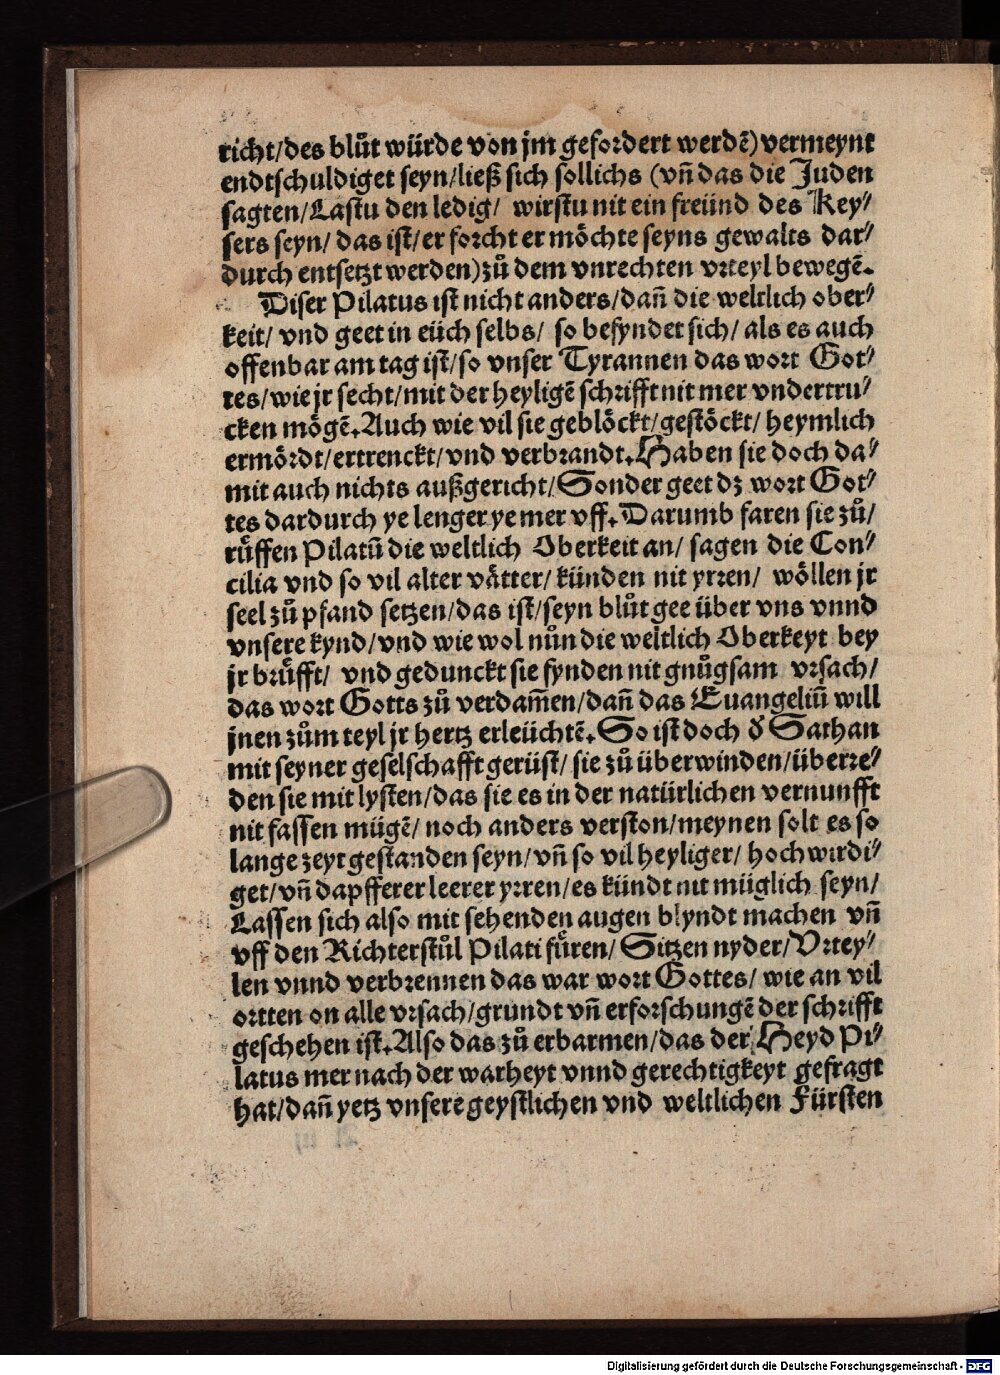 richt/des blůt würde von jm gefordert werdē) vermeynt
endtschuldiget seyn/ließ sich sollichs (vñ das die Juden
sagten/Lastu den ledig/ wirstu nit ein freünd des Key⸗
sers seyn/ das ist/er forcht er möchte seyns gewalts dar⸗
durch entsetzt werden) zů dem vnrechten vrteyl bewegē.
Diser Pilatus ist nicht anders/dañ die weltlich ober⸗
keit/ vnd geet in eüch selbs/ so befyndet sich/ als es auch
offenbar am tag ist/so vnser Tyrannen das wort Got⸗
tes/wie jr secht/mit der heyligē schrifft nit mer vndertru⸗
cken mögē. Auch wie vil sie geblöckt/gestöckt/ heymlich
ermördt/ertrenckt/vnd verbrandt. Haben sie doch da⸗
mit auch nichts außgericht/Sonder geet dz wort Got⸗
tes dardurch ye lenger ye mer vff. Darumb faren sie zů/
rüffen Pilatū die weltlich Oberkeit an/ sagen die Con⸗
cilia vnd so vil alter vätter/ künden nit yrren/ wöllen jr
seel zů pfand setzen/das ist/seyn blůt gee über vns vnnd
vnsere kynd/vnd wie wol nůn die weltlich Oberkeyt bey
jr brüfft/ vnd gedunckt sie fynden nit gnůgsam vrsach/
das wort Gotts zů verdam̄en/dañ das Euangeliū will
jnen zům teyl jr hertz erleüchtē. So ist doch d̓ Sathan
mit seyner geselschafft gerüst/ sie zů überwinden/überre⸗
den sie mit lysten/das sie es in der natürlichen vernunfft
nit fassen mügē/ noch anders verston/meynen solt es so
lange zeyt gestanden seyn/vñ so vil heyliger/ hochwirdi⸗
get/vñ dapfferer leerer yrren/es kündt nit müglich seyn/
Lassen sich also mit sehenden augen blyndt machen vñ
vff den Richterstůl Pilati füren/ Sitzen nyder/Vrtey⸗
len vnnd verbrennen das war wort Gottes/ wie an vil
ortten on alle vrsach/grundt vñ erforschungē der schrifft
geschehen ist. Also das zů erbarmen/das der Heyd Pi⸗
latus mer nach der warheyt vnnd gerechtigkeyt gefragt
hat/dañ yetz vnsere geystlichen vnd weltlichen Fürsten
Digitalisierung gefördert durch die Deutsche Forschungsgemeinschaft - DFG